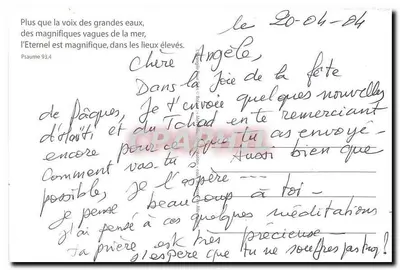 Plus que la voix des grandes eaux,
des magnifiques vagues de la mer,
l'Eternel est magnifique, dans les lieux élevés.
Psaume 93.4
le 20-04-04
Chère Angèle,
Dans la Joie de la fête
de Pâques, je t'envoie quelques nouvelles
d'Haïti et du Tchad en te remerciant
encore pour ce que tu as envoyé.
Comment vas-tu ? Aussi bien que
possible, je l'espère ---
je pense beaucoup à toi -
j'ai pensé à ces quelques méditations
Ta prière est très précieuse -
j'espère que tu ne souffres pas trop !